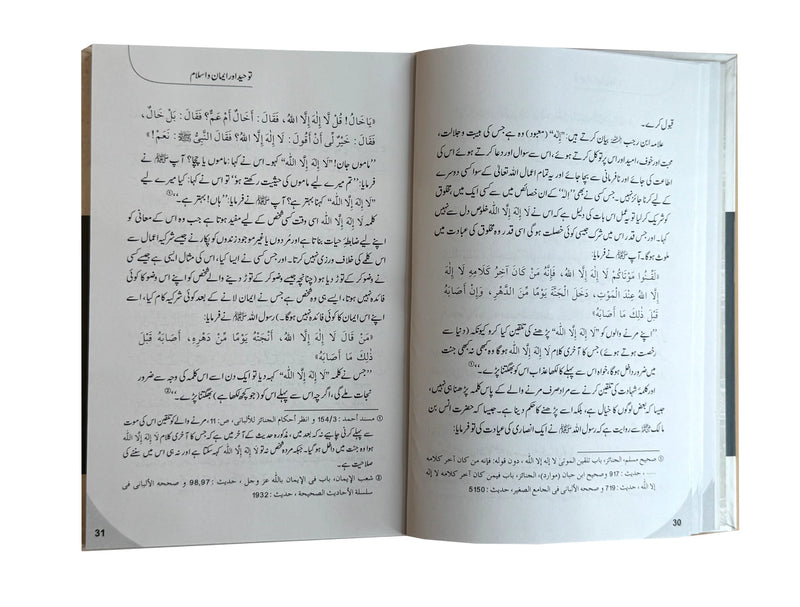 قبول کرے۔
علامہ ابن رجب رحمہ اللہ بیان کرتے ہیں: ”إلٰہ“ (معبود) وہ ہے جس کی ہیبت و جلالت،
محبت اور خوف، امید اور اس پر توکل کرتے ہوئے، اس سے سوال اور دعا کرتے ہوئے اس کی
اطاعت کی جائے اور نافرمانی سے بچا جائے اور یہ تمام اعمال اللہ تعالیٰ کے سوا کسی دوسرے
کے لیے کرنا جائز نہیں۔ جس کسی نے بھی ”الٰہ“ کے ان خصائص میں سے کسی ایک میں مخلوق
کو شریک کر لیا تو یہ عمل اس بات کی دلیل ہے کہ اس نے لَا إِلٰهَ إِلَّا اللّٰه خلوص دل سے نہیں
کہا۔ اور جس قدر اس میں شرک جیسی کوئی خصلت ہوگی اسی قدر وہ مخلوق کی عبادت میں
ملوث ہوگا۔ آپ ﷺ نے فرمایا:
«لَقِّنُوا مَوْتَاكُمْ لَا إِلٰهَ إِلَّا اللّٰهُ، فَإِنَّهُ مَنْ كَانَ آخِرُ كَلَامِهِ لَا إِلٰهَ
إِلَّا اللّٰهُ عِنْدَ الْمَوْتِ، دَخَلَ الْجَنَّةَ يَوْمًا مِّنَ الدَّهْرِ، وَإِنْ أَصَابَهُ
قَبْلَ ذٰلِكَ مَا أَصَابَهُ»
”اپنے مرنے والوں کو ”لَا إِلٰهَ إِلَّا اللّٰه“ پڑھنے کی تلقین کیا کرو کیونکہ (دنیا سے
رخصت ہوتے ہوئے) جس کا آخری کلام لَا إِلٰهَ إِلَّا اللّٰه ہوگا وہ کبھی نہ کبھی جنت
میں ضرور داخل ہوگا، خواہ اس سے پہلے کا لکھا عذاب اس کو بھگتنا پڑے۔“①
اور کلمۂ شہادت کی تلقین کرنے سے مراد صرف مرنے والے کے پاس کلمہ پڑھنا ہی نہیں،
جیسا کہ بعض لوگوں کا خیال ہے، بلکہ اسے پڑھنے کا حکم دینا ہے۔ جیسا کہ حضرت انس بن
مالک رضی اللہ عنہ سے روایت ہے کہ رسول اللہ ﷺ نے ایک انصاری کی عیادت کی تو فرمایا:
① صحیح مسلم، الجنائز، باب تلقین الموتیٰ لا إله إلا الله، دون قوله: فإنه من كان آخر كلامه
....، حدیث: 917 وصحیح ابن حبان (موارد)، الجنائز، باب فیمن كان آخر كلامه لا إله
إلا الله، حدیث: 719 و صححه الألبانی فی الجامع الصغیر، حدیث: 5150
30
توحید اور ایمان و اسلام
«يَا خَالُ! قُلْ لَّا إِلٰهَ إِلَّا اللّٰهُ، فَقَالَ: أَخَالٌ أَمْ عَمٌّ؟ فَقَالَ: بَلْ خَالٌ،
فَقَالَ: خَيْرٌ لِّي أَنْ أَقُولَ: لَا إِلٰهَ إِلَّا اللّٰهُ؟ فَقَالَ النَّبِيُّ ﷺ: نَعَمْ!»
”ماموں جان! ”لَا إِلٰهَ إِلَّا اللّٰه“ کہو۔ اس نے کہا: ماموں یا چچا؟ آپ ﷺ نے
فرمایا: ”تم میرے لیے ماموں کی حیثیت رکھتے ہو“ تو اس نے کہا: کیا میرے لیے
”لَا إِلٰهَ إِلَّا اللّٰه“ کہنا بہتر ہے؟ آپ ﷺ نے فرمایا: ”ہاں! بہتر ہے۔“①
کلمہ لَا إِلٰهَ إِلَّا اللّٰه اسی وقت کسی شخص کے لیے مفید ہوتا ہے جب وہ اس کے معانی کو
اپنے لیے ضابطۂ حیات بناتا ہے اور مُردوں یا غیر موجود زندوں کو پکارنے جیسے شرکیہ اعمال سے
اس کلمے کی خلاف ورزی نہیں کرتا۔ اور جس کسی نے ایسا کیا، اس کی مثال ایسی ہے جیسے کسی
نے وضو کر کے توڑ دیا ہو (چنانچہ جیسے وضو کر کے توڑ دینے والے شخص کو اپنے اس وضو کا کوئی
فائدہ نہیں ہوتا، ایسے ہی وہ شخص ہے جس نے ایمان لانے کے بعد کوئی شرکیہ کام کیا، اسے
اپنے اس ایمان کا کوئی فائدہ نہیں ہوگا۔) رسول اللہ ﷺ نے فرمایا:
«مَنْ قَالَ لَا إِلٰهَ إِلَّا اللّٰهُ، أَنْجَتْهُ يَوْمًا مِّنْ دَهْرِهِ، أَصَابَهُ قَبْلَ
ذٰلِكَ مَا أَصَابَهُ»
”جس نے کلمہ ”لَا إِلٰهَ إِلَّا اللّٰه“ کہہ دیا تو ایک دن اسے اس کلمہ کی وجہ سے ضرور
نجات ملے گی، اگرچہ اس سے پہلے اس کو (جو کچھ لکھا ہے) بھگتنا پڑے۔“②
① مسند أحمد: 154/3 و انظر أحکام الجنائز للألبانی، ص: 11، مرنے والے کو تلقین اس کی موت
سے پہلے کرنی چاہیے نہ کہ بعد میں، مذکورہ حدیث کے آخر میں ہے کہ جس کا آخری کلام لَا إِلٰهَ إِلَّا اللّٰه
ہوگا وہ جنت میں داخل ہوگا۔ جبکہ مردہ شخص نہ تو لَا إِلٰهَ إِلَّا اللّٰه کہہ سکتا ہے اور نہ ہی اس میں سننے کی
صلاحیت ہے۔
② شعب الإیمان، باب فی الإیمان باللہ عز وجل، حدیث: 98,97 و صححه الألبانی فی
سلسلة الأحادیث الصحیحة، حدیث: 1932
31